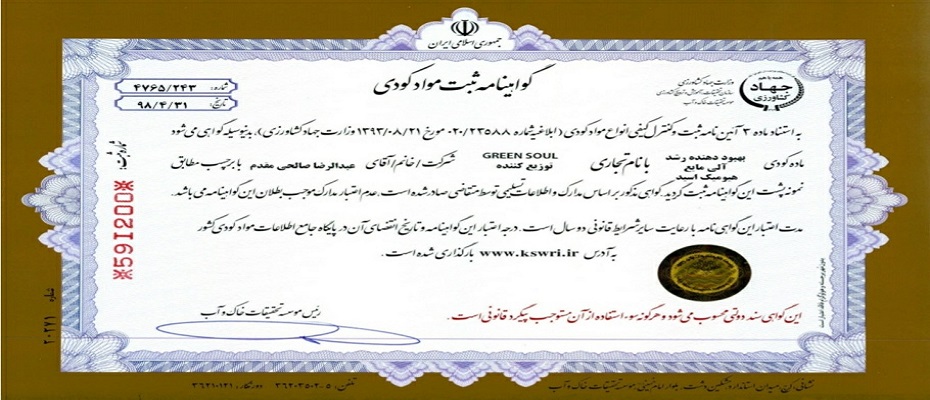 جمهوری اسلامی ایران
گواهینامه ثبت مواد کودی
شماره: ۴۷۶۵/۲۴۳
تاریخ: ۹۸/۴/۳۱
وزارت جهاد کشاورزی
سازمان تحقیقات، آموزش و ترویج کشاورزی
موسسه تحقیقات خاک و آب
همه با هم
جهاد
کشاورزی
به استناد ماده ۳ آئین نامه ثبت و کنترل کیفی انواع مواد کودی (ابلاغیه شماره ۰۲۰/۲۳۵۸۸ مورخ ۱۳۹۳/۰۸/۲۱ وزارت جهاد کشاورزی)، بدینوسیله گواهی می‌شود
ماده کودی بهبود دهنده رشد آلی مایع هیومیک اسید با نام تجاری GREEN SOUL توزیع کننده شرکت/خانم/آقای عبدالرضا صالحی مقدم با برچسب مطابق
نمونه پشت این گواهینامه ثبت گردید. گواهی مذکور بر اساس مدارک و اطلاعات تسلیمی توسط متقاضی صادر شده است. عدم اعتبار مدارک موجب بطلان این گواهینامه می باشد.
مدت اعتبار این گواهی نامه با رعایت سایر شرایط قانونی دو سال است. درجه اعتبار این گواهینامه و تاریخ انقضای آن در پایگاه جامع اطلاعات مواد کودی کشور
به آدرس www.kswri.ir بارگذاری شده است.
رئیس موسسه تحقیقات خاک و آب
این گواهی سند دولتی محسوب می شود و هرگونه سوء استفاده از آن مستوجب پیگرد قانونی است.
شماره ثبت:
※59I200※
شماره ۲۰۲۷۱
نشانی: کرج، میدان استاندارد، مشکین دشت، بلوار امام خمینی، موسسه تحقیقات خاک و آب
تلفن: ۵-۳۶۲۰۳۵۰۲ دورنگار: ۳۶۲۱۰۱۲۱